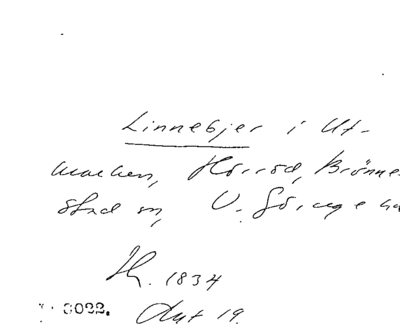 Linnebjer i Ut-
marken, Hörröd, Brönne-
stad sn, V. Göinge hd
Th. 1834
3022. Aut 19.